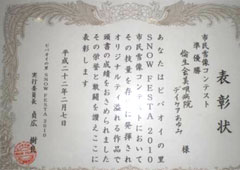 表彰状
市民雪像コンテスト
準優勝
倫生会美唄病院
デイケアあゆみ 様
あなたはピパオイの里
SNOW FESTA 2010
市民雪像コンテストにおいて
その技量を存分に発揮され
オリジナルティ溢れる作品で
頭書の成績をおさめられました
その栄誉と戦闘を讃えここに
表彰します
平成二十二年二月七日
ピパオイの里 SNOW FESTA 2010
実行委員長 貞広